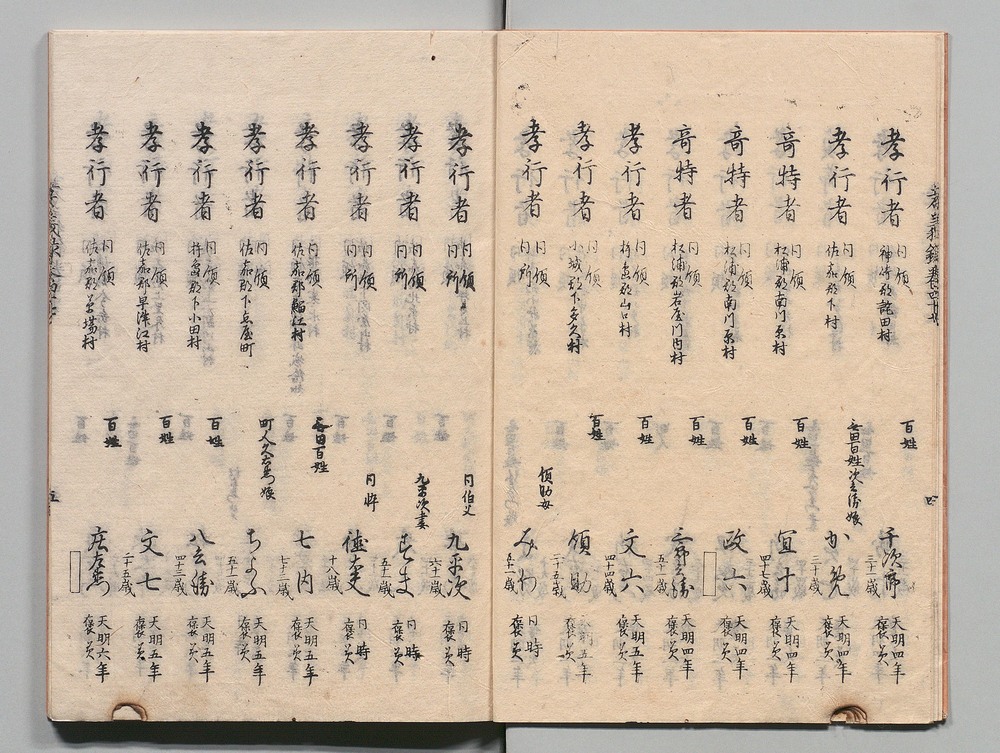 孝行者 同領 神埼郡詫田村 百姓 千次郎 三十一歳 天明四年 褒美
孝行者 同領 佐嘉郡下村 無田百姓次兵衛娘 かめ 三十六歳 天明四年 褒美
奇特者 同領 松浦郡南川原村 百姓 宜十 四十七歳 天明四年 褒美
奇特者 同領 松浦郡南川原村 百姓 政六 天明四年 褒美
奇特者 同領 松浦郡岩屋川内村 百姓 天明四年 褒美
孝行者 同領 杵島郡山口村 百姓 文六 四十四歳 天明五年 褒美
孝行者 同領 小城郡下多久村 百姓 領助 天明五年 褒美
孝行者 同領 同所 領助母 みわ 五十一歳 同時 褒美
孝行者 同領 同所 同伯父 九平次 六十歳 同時 褒美
孝行者 同領 同所 九平次妻 すま 五十一歳 同時 褒美
孝行者 同領 同所 同忰 十八歳 同時 褒美
孝行者 同領 佐嘉郡鰡江村 無田百姓 七内 七十三歳 天明五年 褒美
孝行者 同領 佐嘉郡下点屋町 町人久右衛門娘 ちよふ 五十歳 天明五年 褒美
孝行者 同領 杵島郡下小田村 百姓 八兵勝 四十三歳 天明五年 褒美
孝行者 同領 佐嘉郡早津江村 百姓 文七 二十五歳 天明五年 褒美
孝行者 同領 佐嘉郡 百姓 庄左衛門 天明六年 褒美